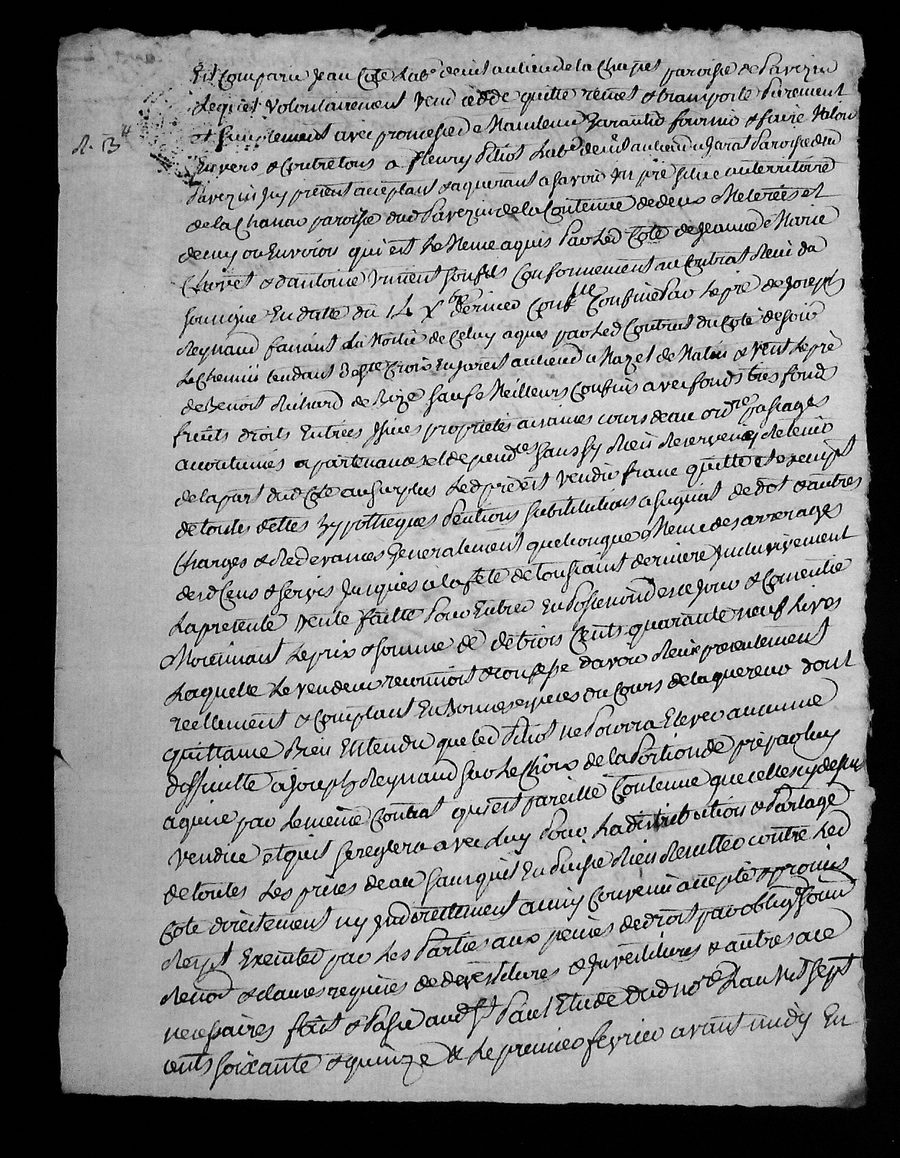 R. 13#
Est Comparu Jean Cote Labr demt au lieu de la Chapes paroisse de Pavezin
Lequel volontairement vend cedde quitte remet & transporte purement
et simplement avec promesse de Maintenir Garantir fournir & faire Valoir
Envers & Contre tous a Fleury Piliot Labr demt au lieu Jarat Paroisse dud
Pavezin Icy présent acceptant & aquerant a savoir un pré situé au territoire
de la Chanao paroisse dud Pavezin de la Contenue de deux Meterées et
demy ou Environ qui est le Meme aquis par led Cote de Jeanne Marie
Chavet & dantoine Vincent son fils Conformément au Contrat Reçu du
soussigné En datte du 14 Xbre dernier Conle Confiné par le pré de Joseph
Reynaud faisant la Moitié de Celuy aquis par led Contrat du Coté de soir
le Chemin tendant de Ste Croix En Jarest au lieu de Mazet de Matin & vent le pré
de Benoit Richard de Bize sauf Meilleurs Confins avec fonds tres fonds
fruits droits Entrées Issues proprietés aisances cours deau ordres passages
acoutumés apartenances & dependces sans sy Rien Reserver ny Retenir
de la part dud Cote au surplus led pré est vendu franc quitte et exempt
de toutes dettes hypotheques pentions substitutions asuguiat de dot & autres
Charges & Redevances Generalement quelconque Meme des arrerages
desd Cens & servis Jusques a la fete de toussaint derniere Inclusivement
La presente vente faitte pour Entrer En possession des ce Jour & Convenue
Moyennant le prix & somme de de trois Cents quarante neuf Livres
Laquelle le vendeur reconnoit & confesse davoir Reçu presentement
reellement & Comptant En bonnes especes du Cours de laquereur dont
quittance Bien Entendu que led Piliot ne pourra Elever aucunne
difficulté a Joseph Reynaud sur le Choix de la Portion de pré par luy
aquise par le meme Contrat qui est pareille Contenue que celle cy dessus
vendue et quil se reglera avec luy pour la distribution & Partage
de toutes Les prises deau sans quil En puisse Rien Repetter contre led
Cote directement ny Indirectement ainsy Convenu accepté & promis
Respt Executer par Les Parties aux peines de droit par oblig soum
Renon & clauses requises de devestitures & Investitures & autres a ce
necessaires fait & Passé aud St Paul Etude dud nore Lan Mil sept
cents soixante & quinze & le premier fevrier avant midy En